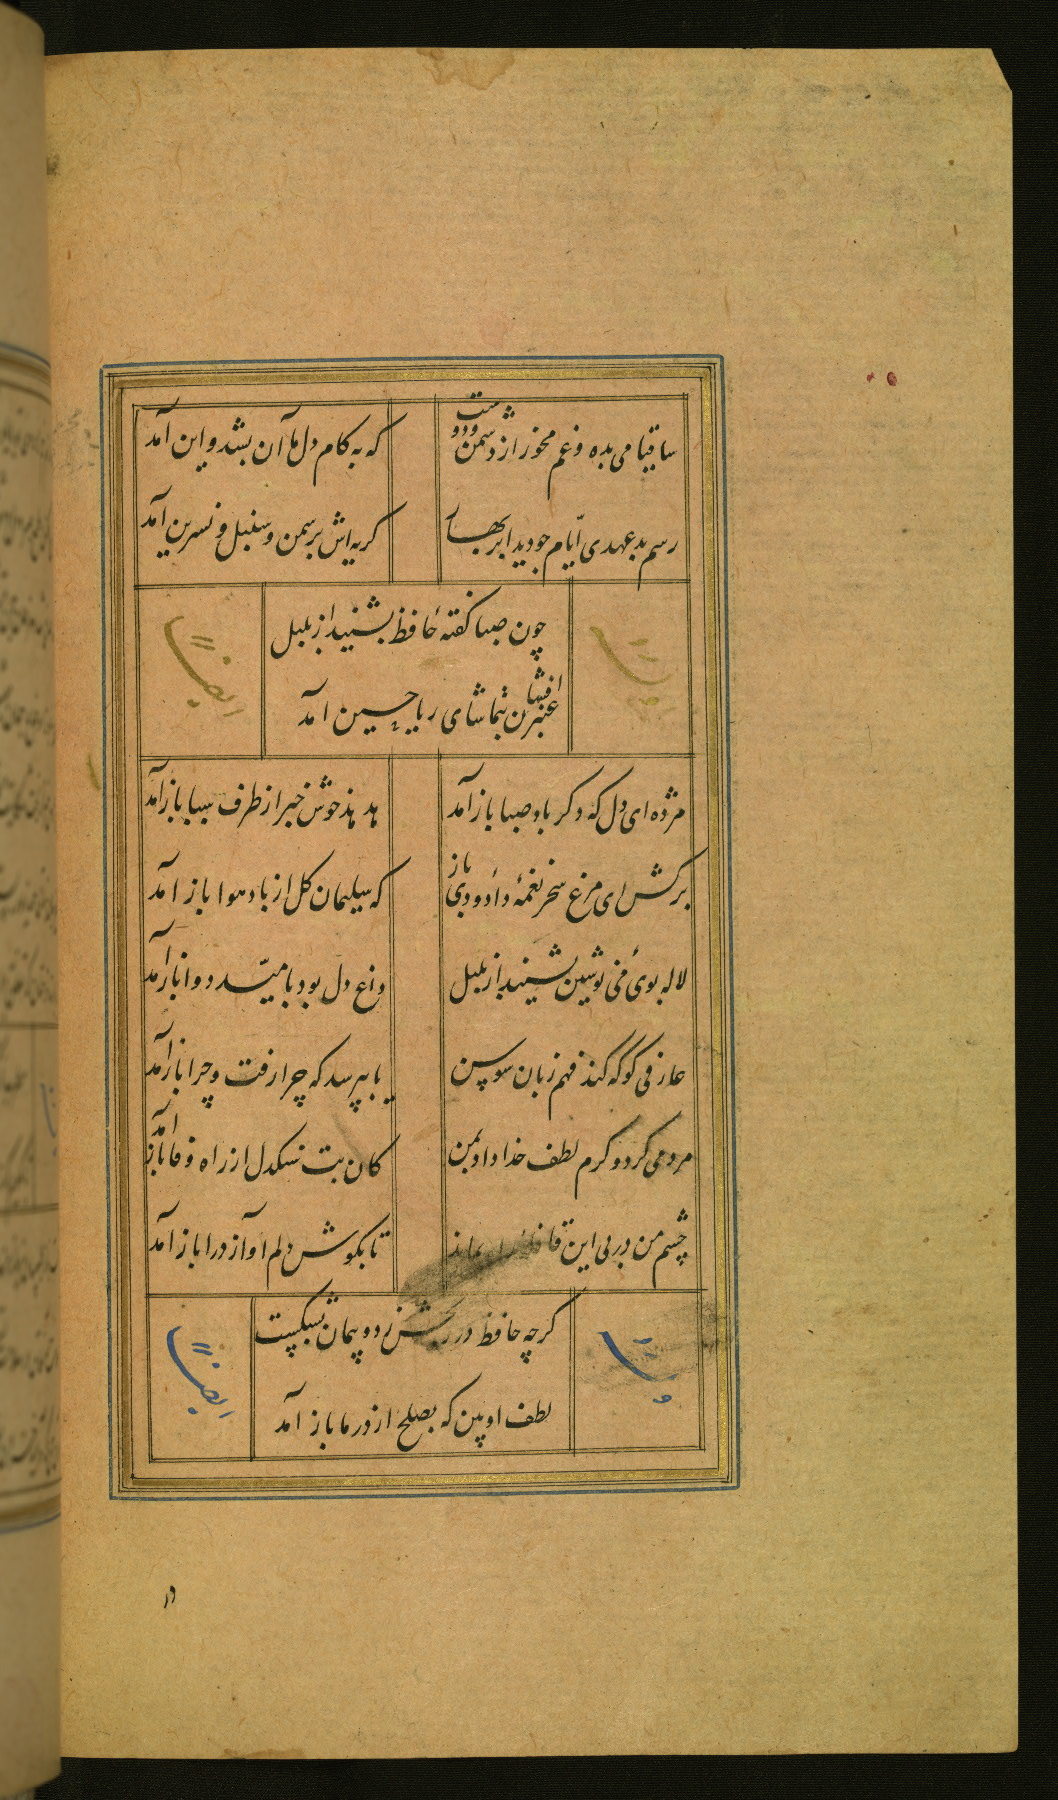 ساقیا می بده و غم مخور از دشمن و دوست
که به کام دل ما آن بشد و این آمد
رسم بد عهدی ایّام چو دید ابر بهار
کریه اش بر سمن و سنبل و نسرین آمد
چون صبا کفتهٔ حافظ بشنید از بلبل
عنبر افشان بتماشای ریاحین آمد
ایضاً
مژده ای دل که دکر باد صبا باز آمد
هدهد خوش خبر از طرف سبا باز آمد
برکش ای مرغ سحر نغمهٔ داودی باز
که سلیمان کل از باد هوا باز آمد
لاله بوی می نوشین بشنید از بلبل
داغ دل بود بامیّد دوا باز آمد
عارفی کو که کند فهم زبان سوسن
تا بپرسد که چرا رفت و چرا باز آمد
مردمی کرد و کرم لطف خدا داد بمن
کان بت سنکدل از راه وفا باز آمد
چشم من در پی این قافله بماند
تا بکوش دلم آواز درا باز آمد
کرچه حافظ در رنجش زد و پیمان بشکست
لطف او بین که بصلح از در ما باز آمد
ایضاً